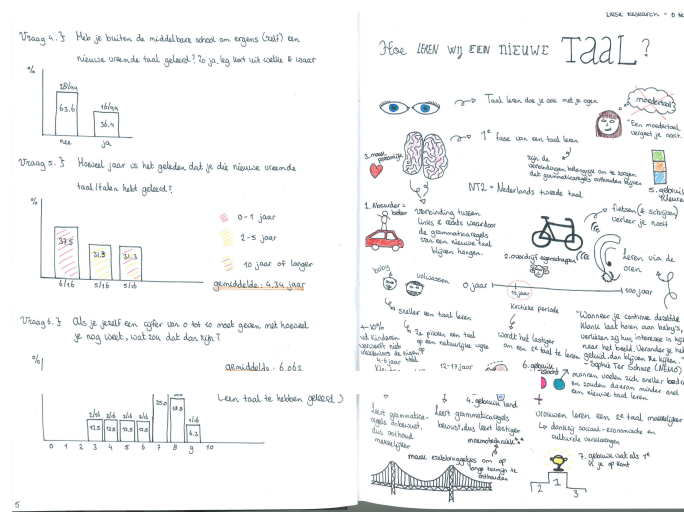 Vraag 4.} Heb je buiten de middelbare school om ergens (zelf) een
nieuwe vreemde taal geleerd? Zo ja, leg kort uit welke & waar
%
28/44
63.6
16/44
36.4
nee
ja
Vraag 5.} Hoeveel jaar is het geleden dat je die nieuwe vreemde
taal/talen hebt geleerd?
%
37.5
31.3
31.3
6/16
5/16
5/16
0-1 jaar
2-5 jaar
10 jaar of langer
gemiddelde: 4.34 jaar
Vraag 6.} Als je jezelf een cijfer van 0 tot 10 moet geven met hoeveel
je nog weet, wat zou dat dan zijn?
%
gemiddelde - 6.062
(een taal te hebben geleerd)
2/16
2/16
2/16
2/16
1/16
12.5
12.5
12.5
12.5
25.0
6.3
0 1 2 3 4 5 6 7 8 9 10
5
Hoe LEREN WIJ EEN NIEUWE TAAL?
Taal leren doe je ook met je ogen
moedertaal
"Een moedertaal
vergeet je nooit.
1e fase van een taal leren
3. maak
persoonlijk
zijn de
verbindingen belangrijk om te zorgen
dat grammaticaregels onthouden blijven
NT2 = Nederlands tweede taal
5. gebruik
kleuren
1. Absurder =
beter
verbinding tussen
links & rechts waardoor
de grammaticaregels
van een nieuwe taal
blijven hangen.
fietsen (& schrijven)
verleer je nooit
2. overdrijf eigenschappen
Leren via de
oren
baby
volwassen
0 jaar
12 jaar
100 jaar
sneller een taal leren
Kritieke periode
Ze pikken een taal
op een natuurlijke wijze
op
wordt het lastiger
om een 2e taal te leren
+-10%
vd kinderen
4-6 jaar
12-17 jaar
6. gebruik
"Wanneer je continue dezelfde
klank laat horen aan baby's,
verliezen zij hun interesse in kij
naar het beeld. Verander je het
geluid, dan blijven ze kijken."
- Sophie Ter Schure (NEMO)
mannen voelen zich sneller
en zouden daarom minder snel
een nieuwe taal leren
4. gebruik land
leert grammatica-
regels onbewust,
dus onthoud
makkelijker
leert grammaticaregels
bewust, dus leert lastiger
mnemotechniek
maak ezelsbruggetjes om op
lange termijn te
onthouden
vrouwen leren een 2e taal makkelijker
dankzij sociaal-economische en
culturele verklaringen
7. gebruik wat als 1e
in je op komt
2 1 3